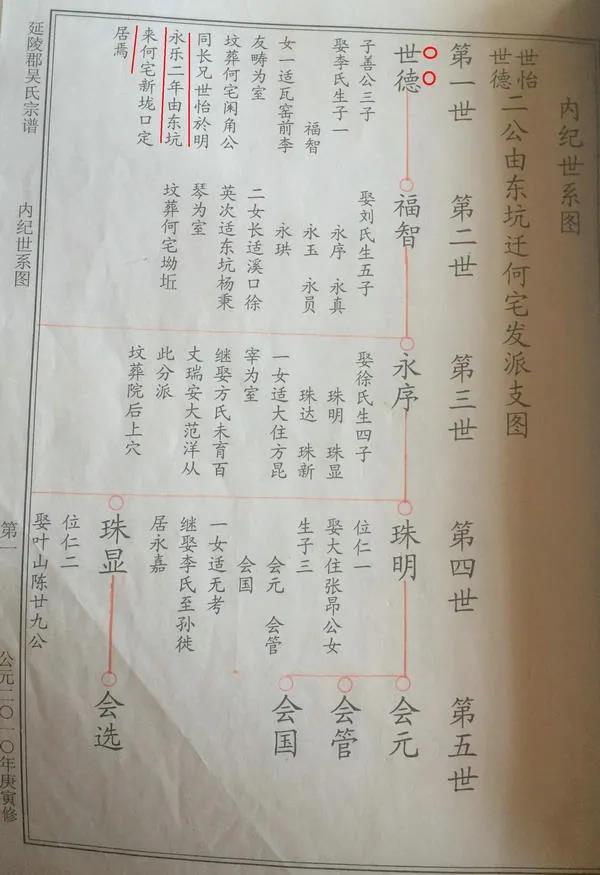 内纪世系图
世怡
世德
二公由东坑迁何宅发派支图
第一世
世德
子善公三子
娶李氏生子一
福智
女一适瓦窑前李
友畴为室
坟葬何宅闲角公
同长兄世怡於明
永乐二年由东坑
来何宅新垅口定
居焉
第二世
福智
娶刘氏生五子
永序 永真
永玉 永员
永珙
二女长适溪口徐
英次适东坑杨秉
琴为室
坟葬何宅坳坵
第三世
永序
娶徐氏生四子
珠明 珠显
珠达 珠新
一女适大住方昆
宰为室
继娶方氏未育百
丈瑞安大范洋从
此分派
坟葬院后上穴
第四世
珠明
位仁一
娶大住张昂公女
生子三
会元 会管
会国
一女适无考
继娶李氏至孙徙
居永嘉
珠显
位仁二
娶叶山陈廿九公
第五世
会元
会管
会国
会选
延陵郡吴氏宗谱
内纪世系图
第一
公元二〇一〇年庚寅修